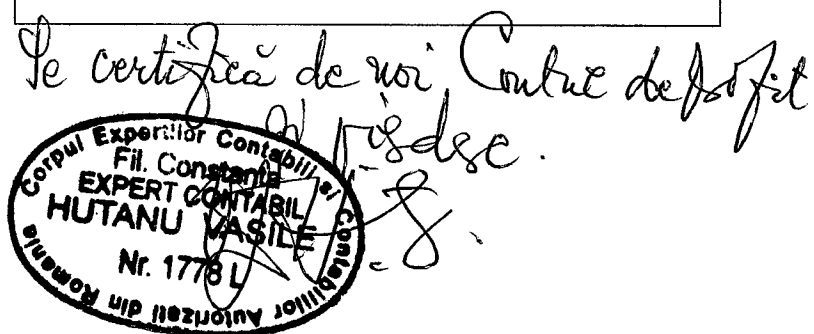 Se certifică de noi Contul de profit
și pierdere.
Corpul Experților Contabili și Contabililor Autorizați din Romania
Fil. Constanta
EXPERT CONTABIL
HUTANU VASILE
Nr. 1778 L